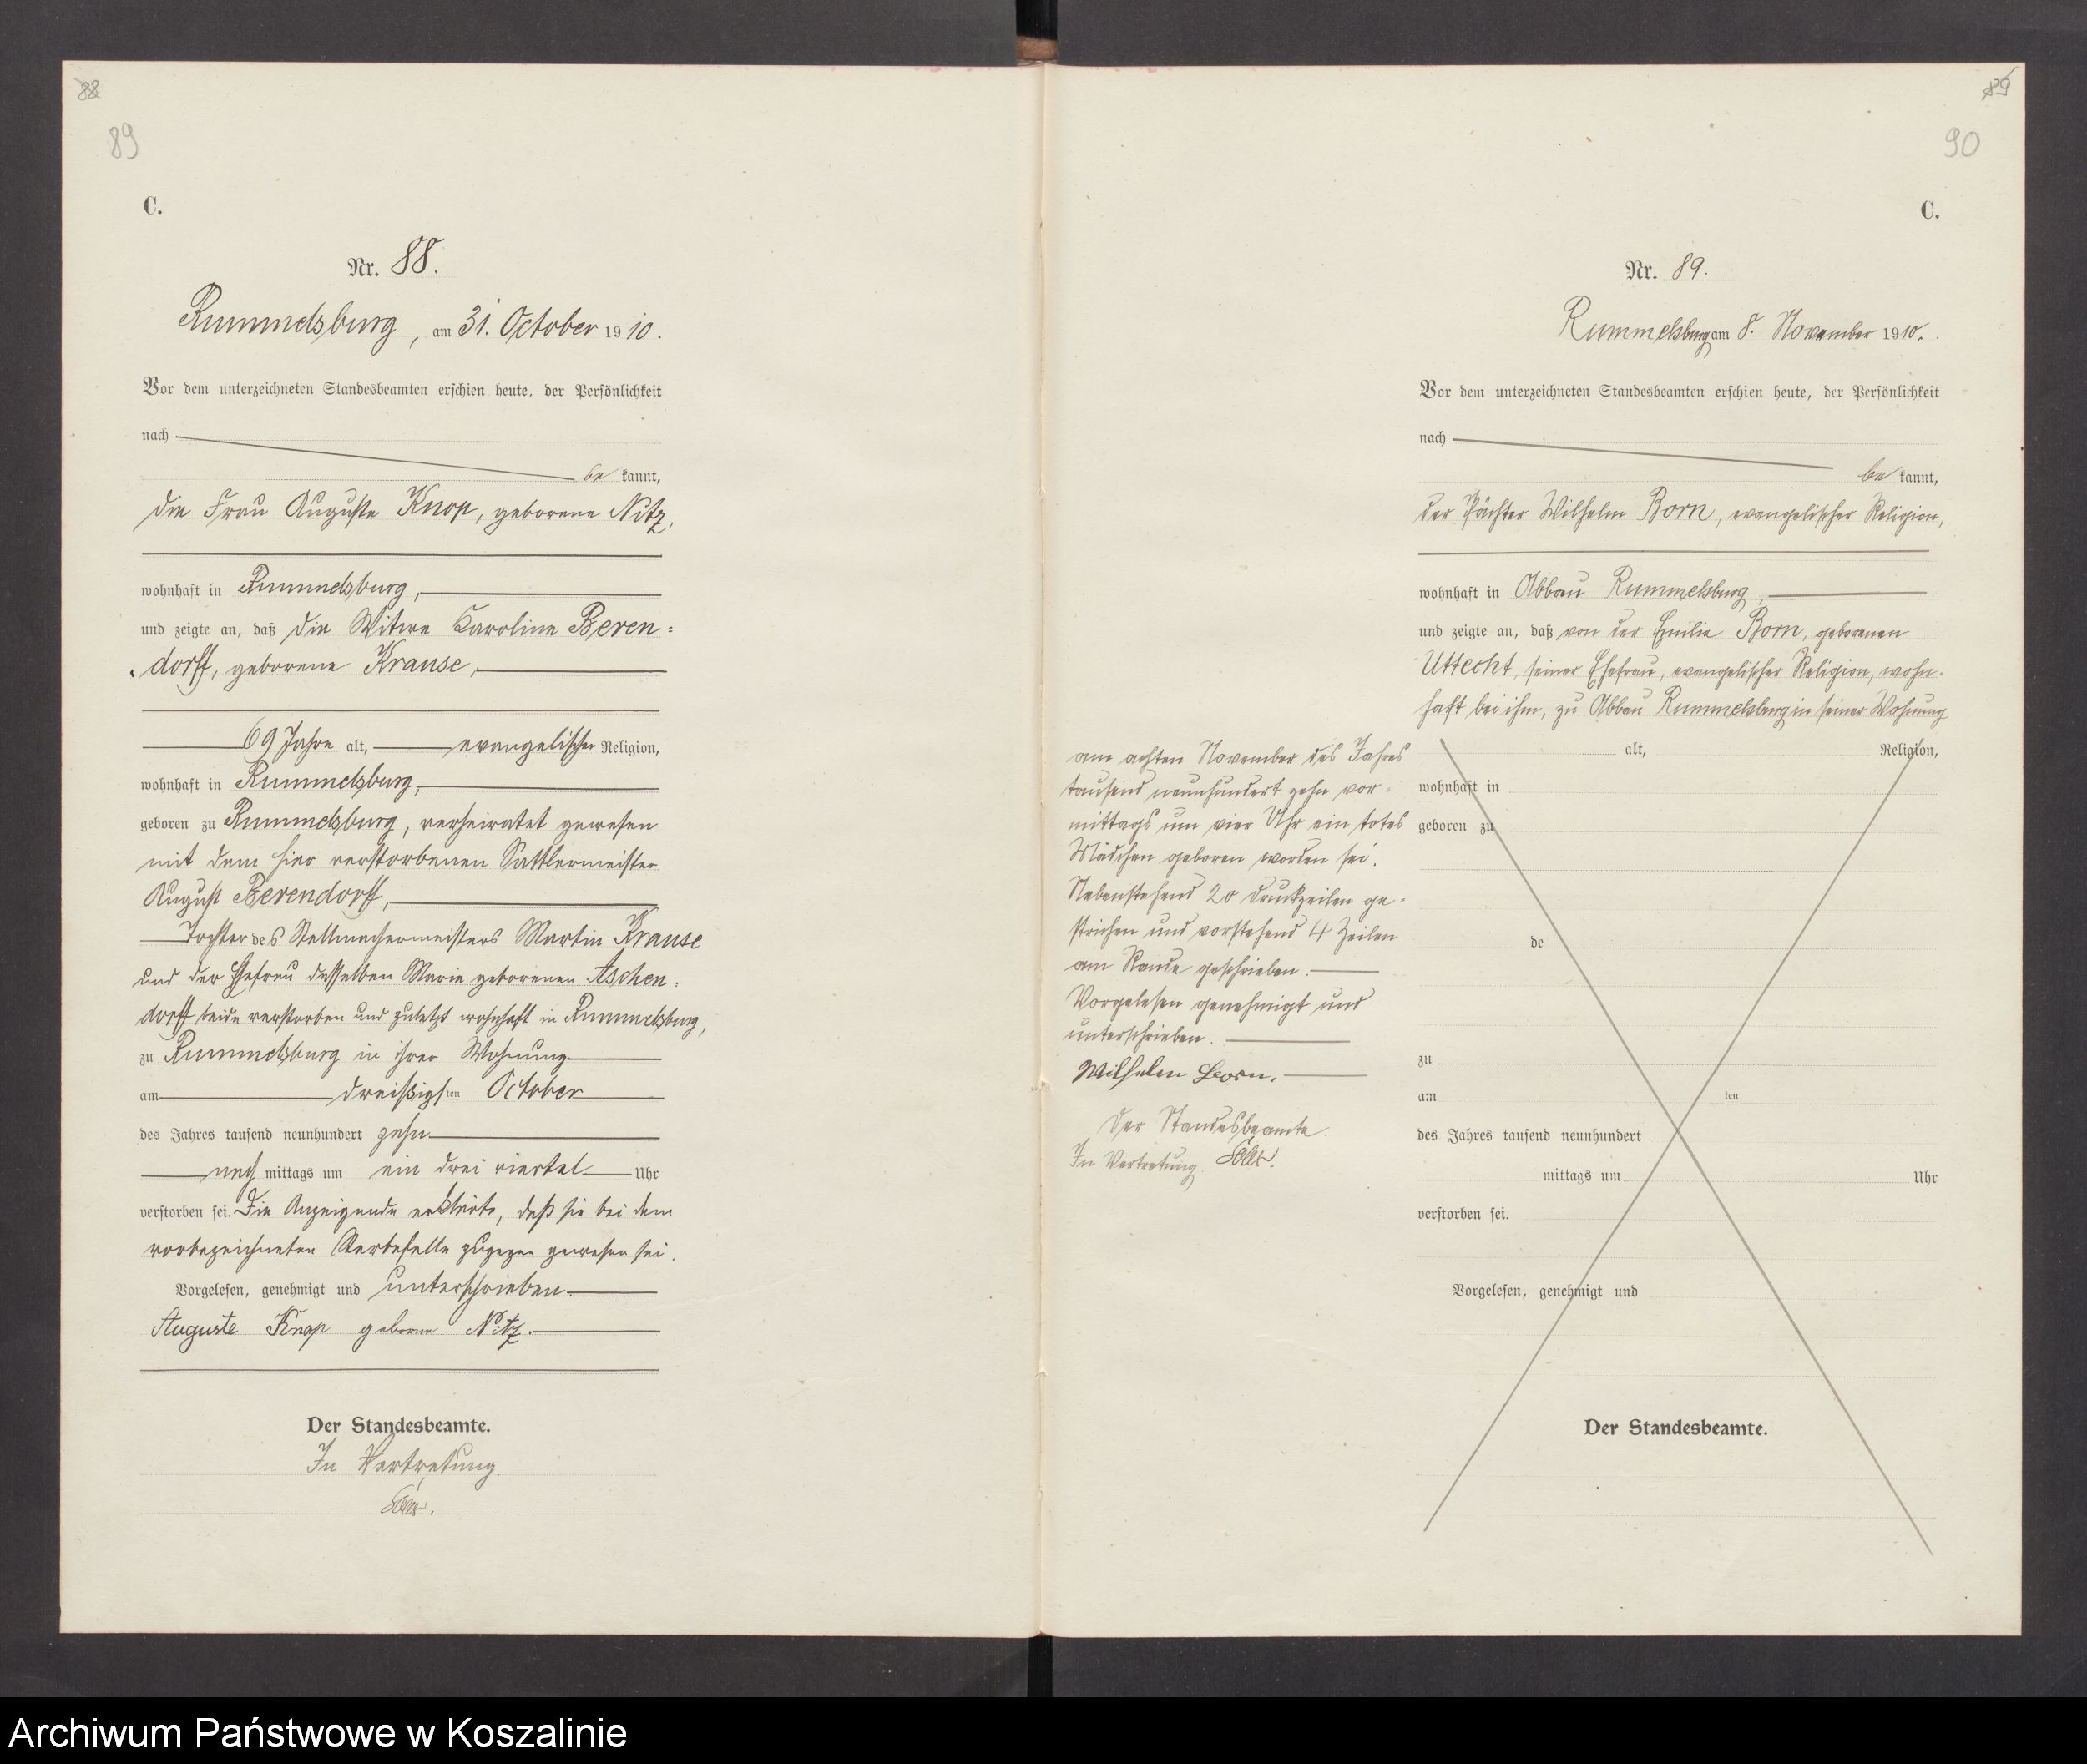 88
89
C.
Nr. 88.
Rummelsburg, am 31. October 1910.
Vor dem unterzeichneten Standesbeamten erschien heute, der Persönlichkeit
nach
bekannt,
die Frau Auguste Knop, geborene Nitz,
wohnhaft in Rummelsburg,
und zeigte an, daß die Witwe Caroline Beren=
dorff, geborene Krause,
69 Jahre alt, evangelischer Religion,
wohnhaft in Rummelsburg,
geboren zu Rummelsburg, verheiratet gewesen
mit dem hier verstorbenen Sattlermeister
August Berendorff,
Tochter des Stellmachermeisters Martin Krause
und der Ehefrau desselben Marie geborenen Aschen=
dorff beide verstorben und zuletzt wohnhaft in Rummelsburg,
zu Rummelsburg in ihrer Wohnung
am dreißigsten October
des Jahres tausend neunhundert zehn
nachmittags um ein drei viertel Uhr
verstorben sei. Die Anzeigende erklärte, daß sie bei dem
vorbezeichneten Sterbefalle zugegen gewesen sei.
Vorgelesen, genehmigt und unterschrieben
Auguste Knop geborne Nitz.
Der Standesbeamte.
In Vertretung.
89
90
C.
Nr. 89.
Rummelsburg am 8. November 1910.
Vor dem unterzeichneten Standesbeamten erschien heute, der Persönlichkeit
nach
bekannt,
der Pächter Wilhelm Born, evangelischer Religion,
wohnhaft in Abbau Rummelsburg,
und zeigte an, daß von der Emilie Born, geborenen
Uttecht, seiner Ehefrau, evangelischer Religion, wohn=
haft bei ihm, zu Abbau Rummelsburg in seiner Wohnung
am achten November des Jahres
tausend neunhundert zehn vor=
mittags um vier Uhr ein totes
Mädchen geboren worden sei.
Nebenstehend 20 Druckzeilen ge=
strichen und vorstehend 4 Zeilen
am Rande geschrieben.
Vorgelesen genehmigt und
unterschrieben.
Wilhelm Born.
Der Standesbeamte.
In Vertretung
alt, Religion,
wohnhaft in
geboren zu
de
zu
am ten
des Jahres tausend neunhundert
mittags um Uhr
verstorben sei.
Vorgelesen, genehmigt und
Der Standesbeamte.
Archiwum Państwowe w Koszalinie